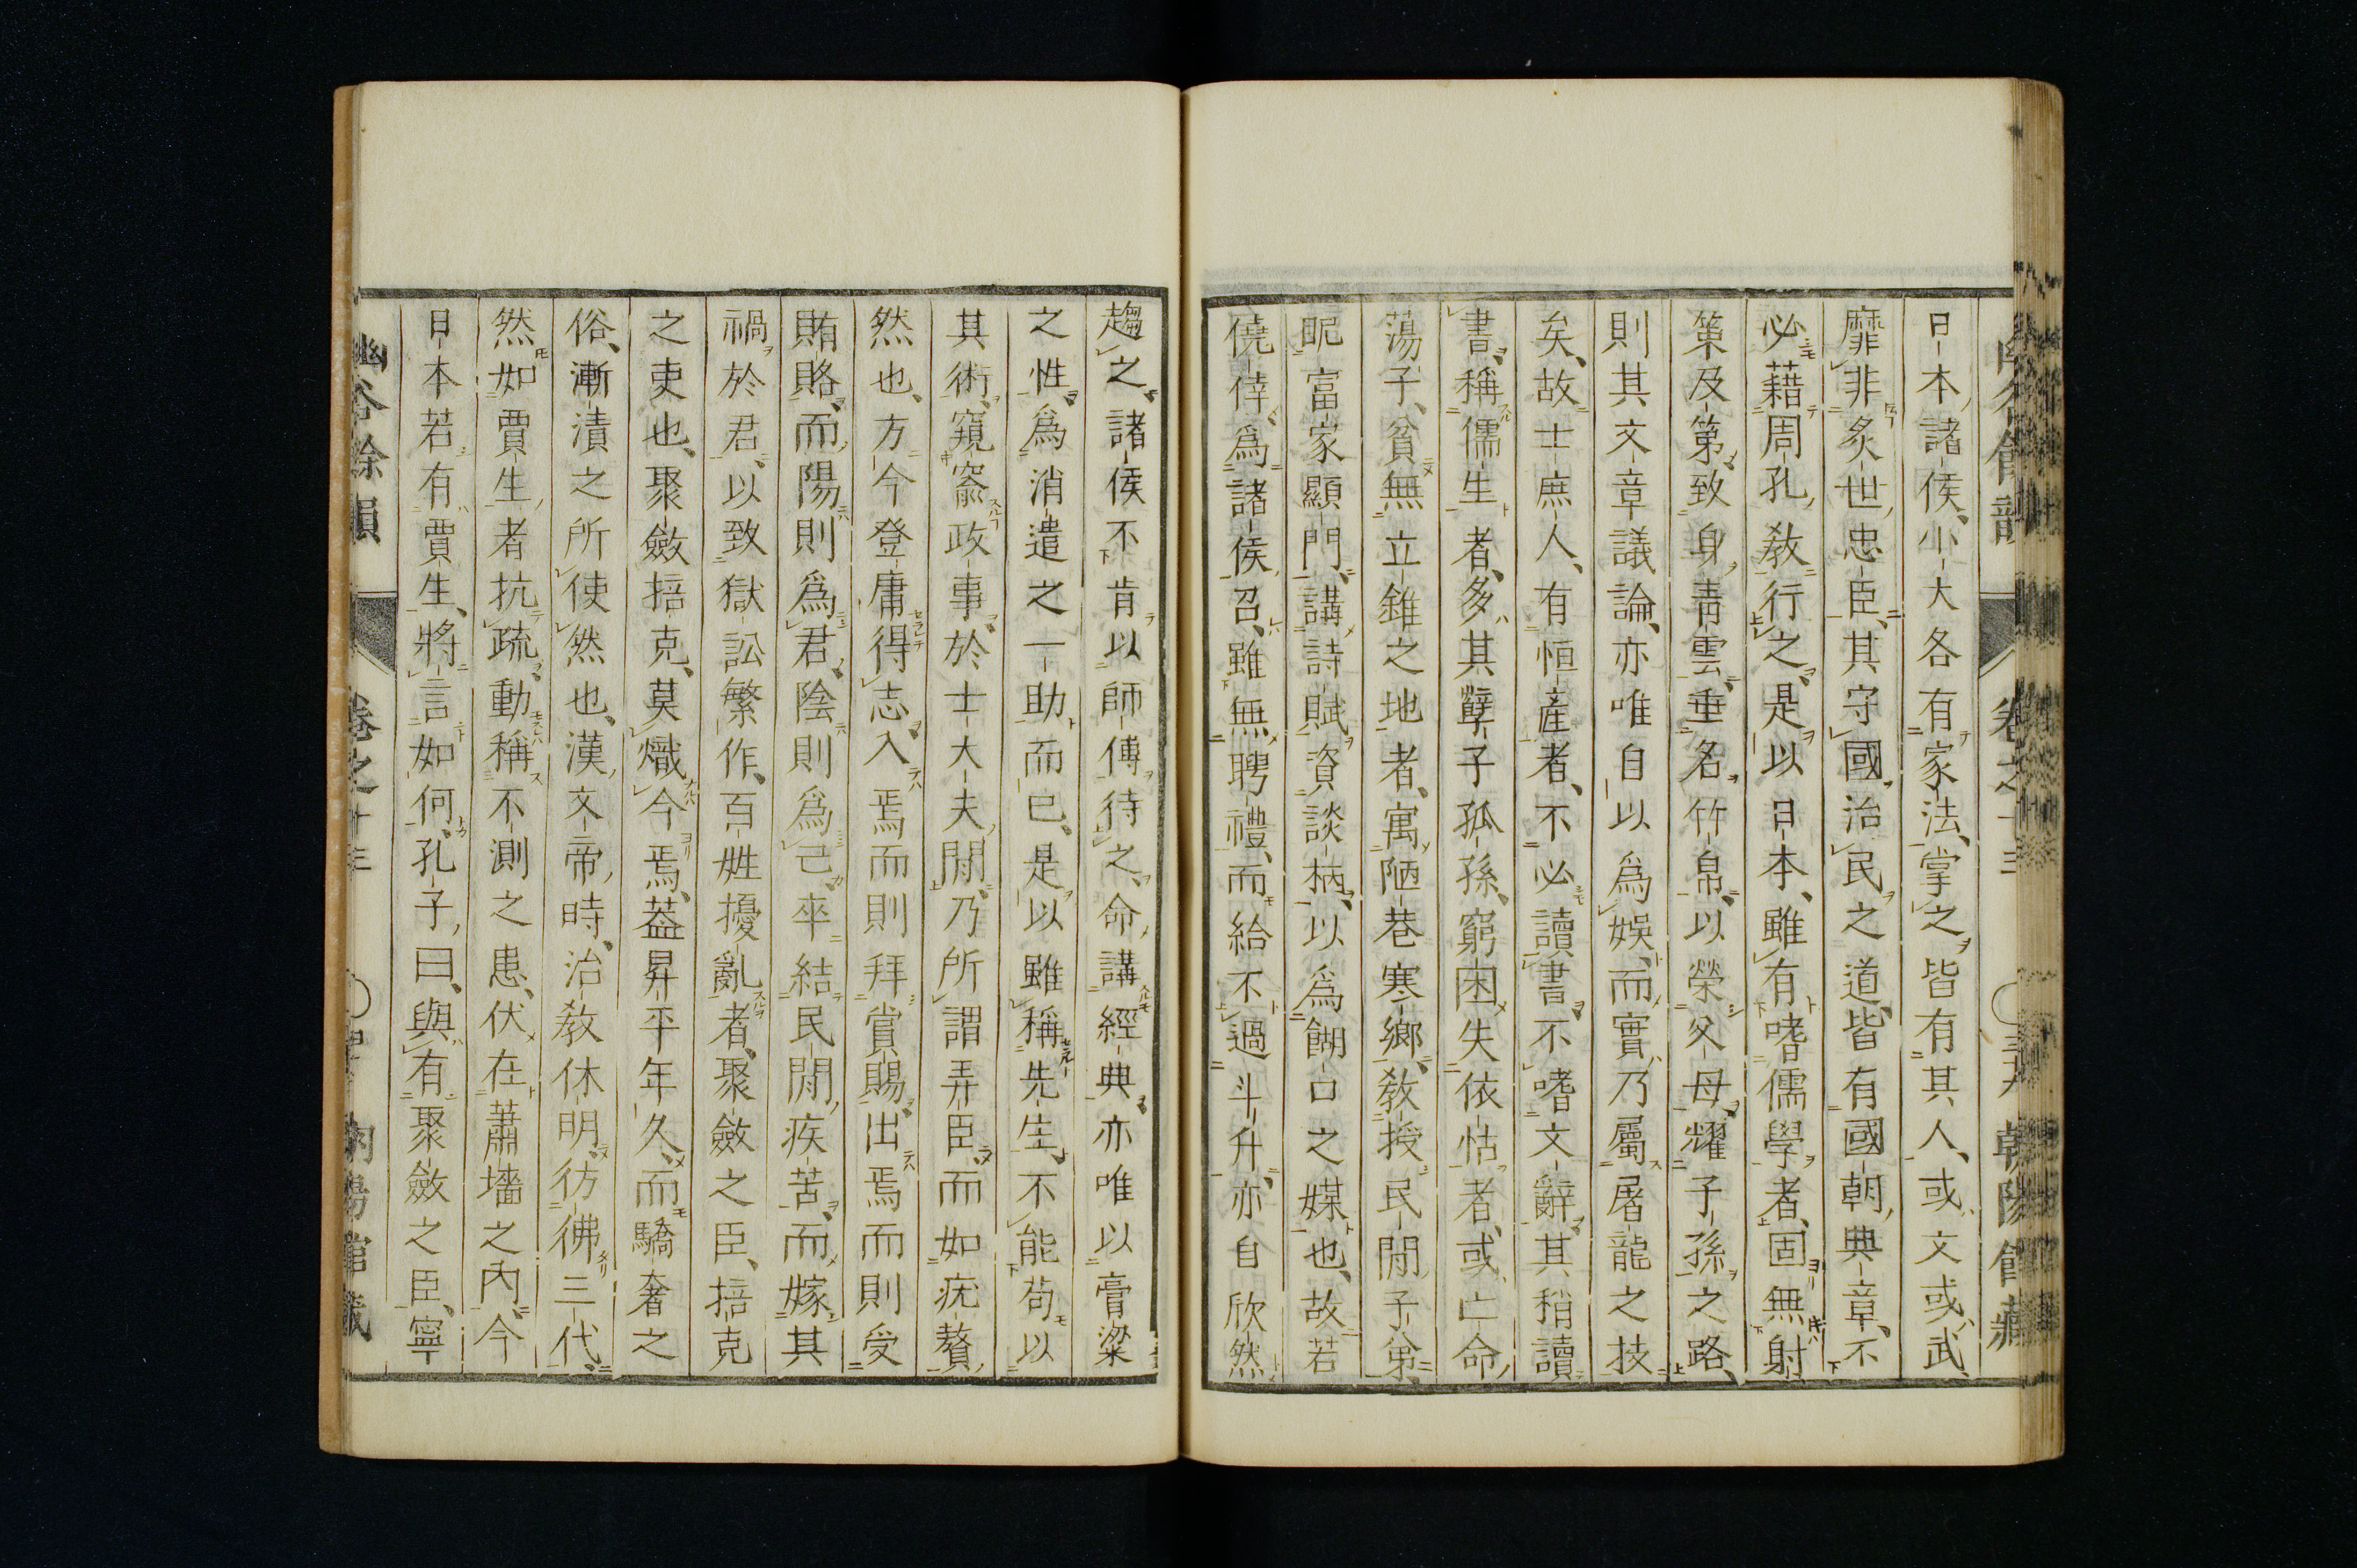 日本諸侯、小大各有家法、掌之皆有其人、或文或武、
靡非炙世忠臣、其守國治民之道、皆有國朝典章、不
必藉周孔教行之、是以日本、雖有嗜儒學者、固無射
策及第、致身青雲、垂名竹帛、以榮父母、耀子孫之路、
則其文章議論、亦唯自以爲娯、而實乃屬屠龍之技
矣、故士庶人、有恒產者、不必讀書、不嗜文辭、其稍讀
書、稱儒生者、多其孽子孤孫、窮困失依怙者、或亡命
蕩子、貧無立錐之地者、寓陋巷寒鄉、教授民間子弟、
昵富家顯門、講詩賦、資談柄、以爲餬口之媒也、故若
僥倖爲諸侯召、雖無聘禮、而給不過斗升、亦自欣然
趨之、諸侯不肯以師傅待之、命講經典、亦唯以膏粱
之性、爲消遣之一助而已、是以雖稱先生、不能苟以
其術、窺窬政事、於士大夫間、乃所謂弄臣、而如疣贅
然也、方今登庸得志、入焉而則拜賞賜、出焉而則受
賄賂、而陽則爲君、陰則爲己、卒結民間疾苦、而嫁其
禍於君、以致獄訟繁作、百姓擾亂者、聚斂之臣、掊克
之吏也、聚斂掊克、莫熾今焉、蓋昇平年久、而驕奢之
俗、漸漬之所使然也、漢文帝時、治教休明、彷彿三代、
然如賈生者抗疏、動稱不測之患、伏在蕭墻之內、今
日本若有賈生、將言如何、孔子曰、與有聚斂之臣、寧
幽谷餘韻 卷之十三